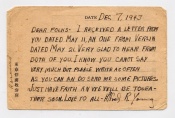 DATE Dec 7, 1943
DEAR FOLKS: I RECEIVED A LETTER FROM
YOU DATED MAY 11, AN ONE FROM
DATED MAY 21. VERY GLAD TO HEAR FROM
BOTH OF YOU. I KNOW YOU CAN'T SAY
VERY MUCH BUT PLEASE WRITE AS OFTEN
AS YOU CAN AN DO SEND ME SOME PICTURES.
JUST HAVE FAITH AN WE'LL BE TOGE-
THER SOON. LOVE TO ALL- R. Young